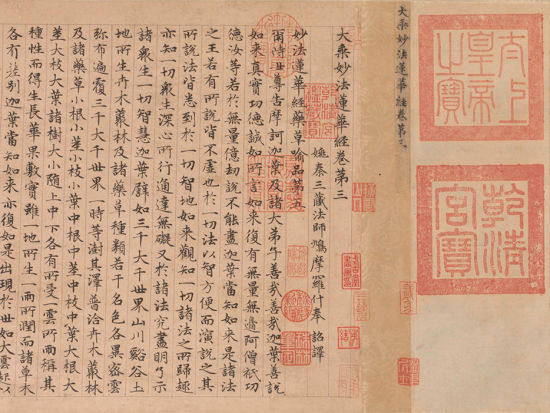 太上皇帝之寶
乾清宮寶
大乘妙法蓮華經卷第三
大乘妙法蓮華經卷第三
姚秦三藏法師鳩摩羅什奉 詔譯
妙法蓮華經藥草喻品第五
爾時世尊告摩訶迦葉及諸大弟子善哉善哉迦葉善說
如來真實功德誠如所言如來復有無量無邊阿僧祇功
德汝等若於無量億劫說不能盡迦葉當知如來是諸法
之王若有所說皆不虛也於一切法以智方便而演說之其
所說法皆悉到於一切智地如來觀知一切諸法之所歸趣
亦知一切衆生深心所行通達無礙又於諸法究盡明了示
諸衆生一切智慧迦葉譬如三千大千世界山川谿谷土
地所生卉木叢林及諸藥草種類若干名色各異密雲
弥布遍覆三千大千世界一時等澍其澤普洽卉木叢林
及諸藥草小根小莖小枝小葉中根中莖中枝中葉大根大
莖大枝大葉諸樹大小隨上中下各有所受一雲所雨稱其
種性而得生長華菓敷實雖一地所生一雨所潤而諸草木
各有差別迦葉當知如來亦復如是出現於世如大雲起以